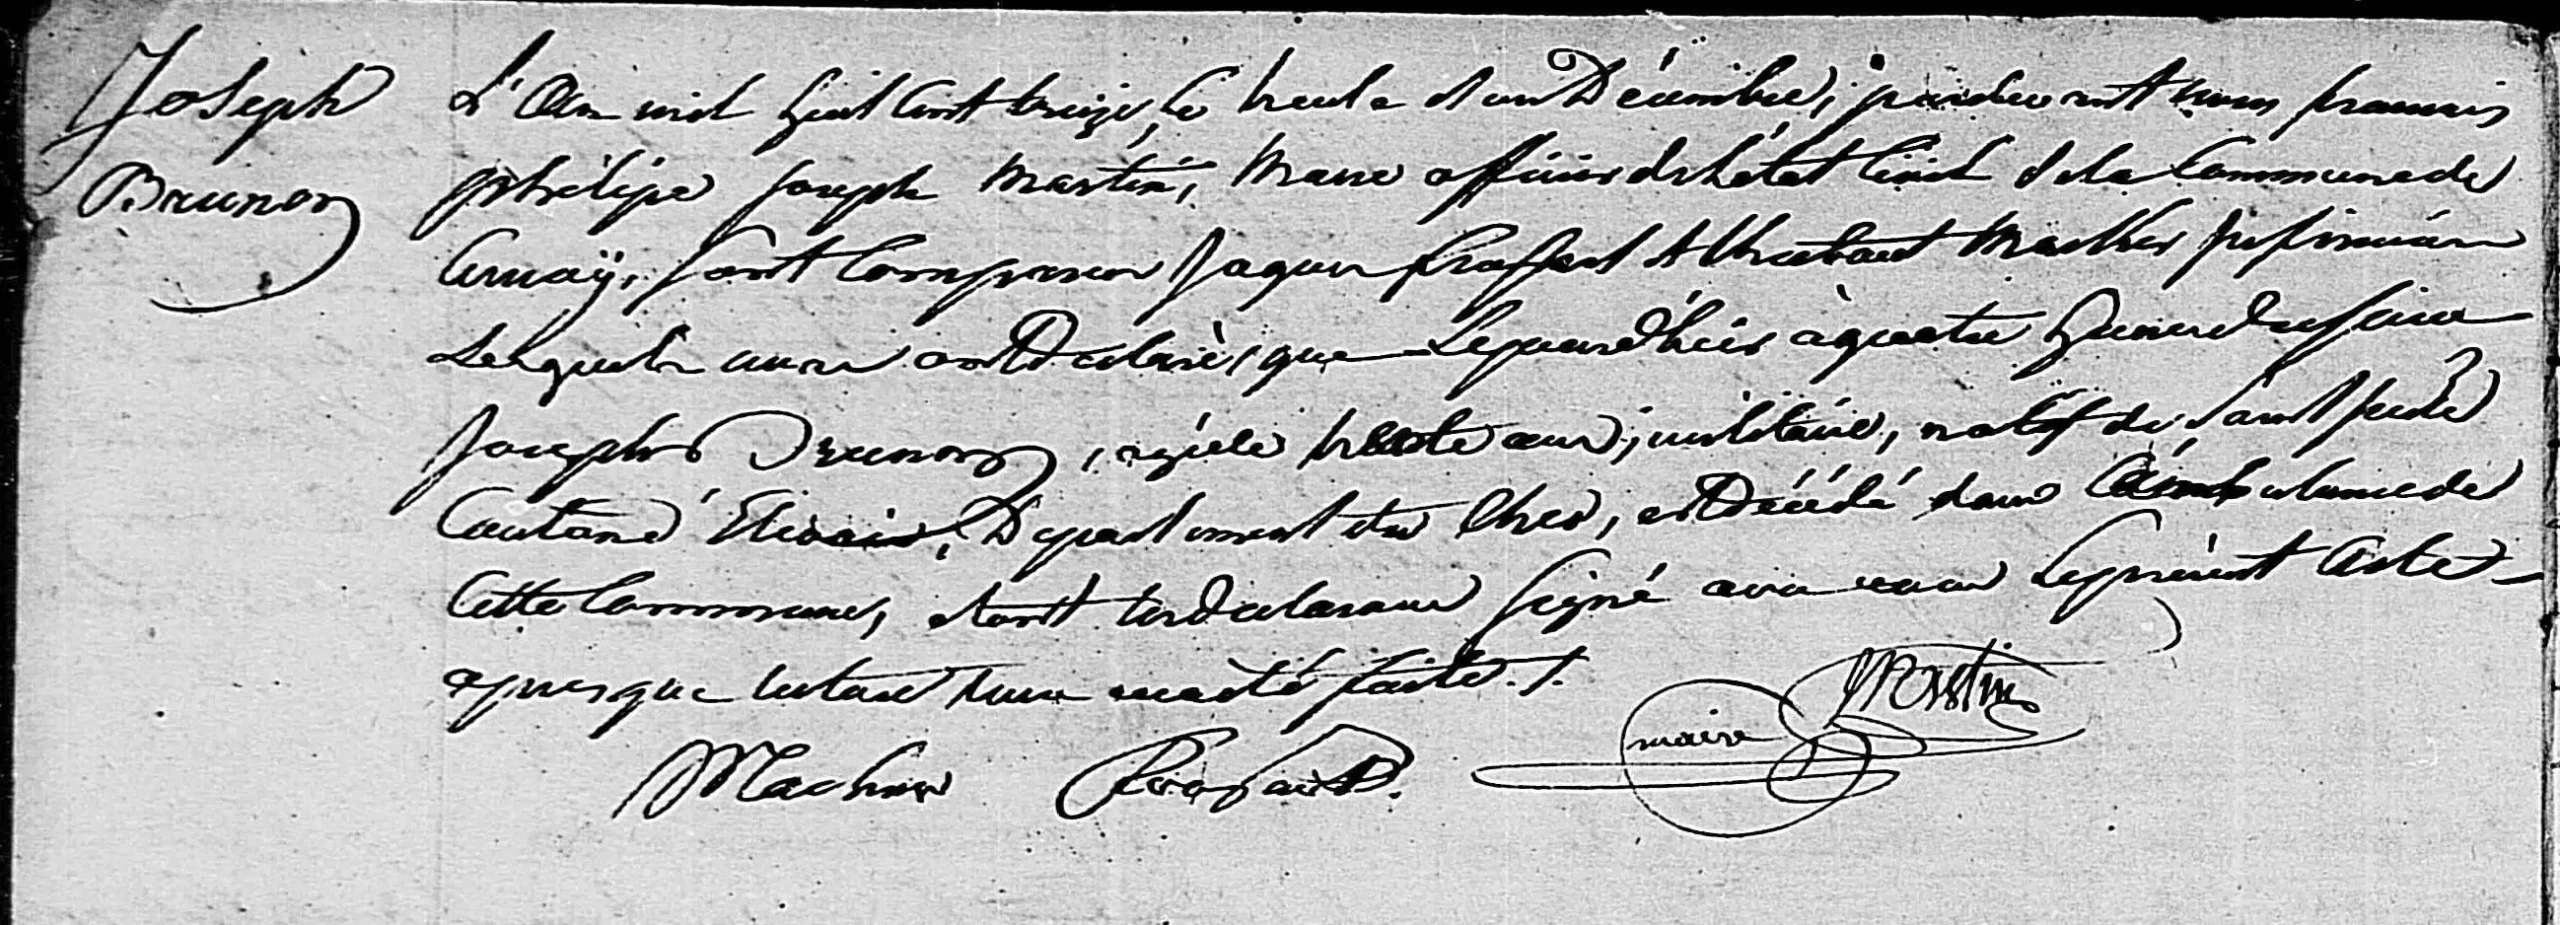 Joseph
Brunon
L'An mil huit cent treize, le trente et un Décembre, pardevant nous francois
philipe joseph Martin, Maire officier de l'état Civil de la Commune de
Cernaÿ, sont comparus Jaques et Thiebaut infirmiers
Lesquels nous ont déclaré, que Lejourdhuis à quatre heures du soir
Joseph Brunon, agé de trente ans, militaire, natif de Saint
Canton d' Département du Cher, est Décédé dans l'ambulance de
Cette Commune, et ont les declarans signé avec nous Le présent Acte
apres que lecture leur en a été faite ./.
Martin
maire